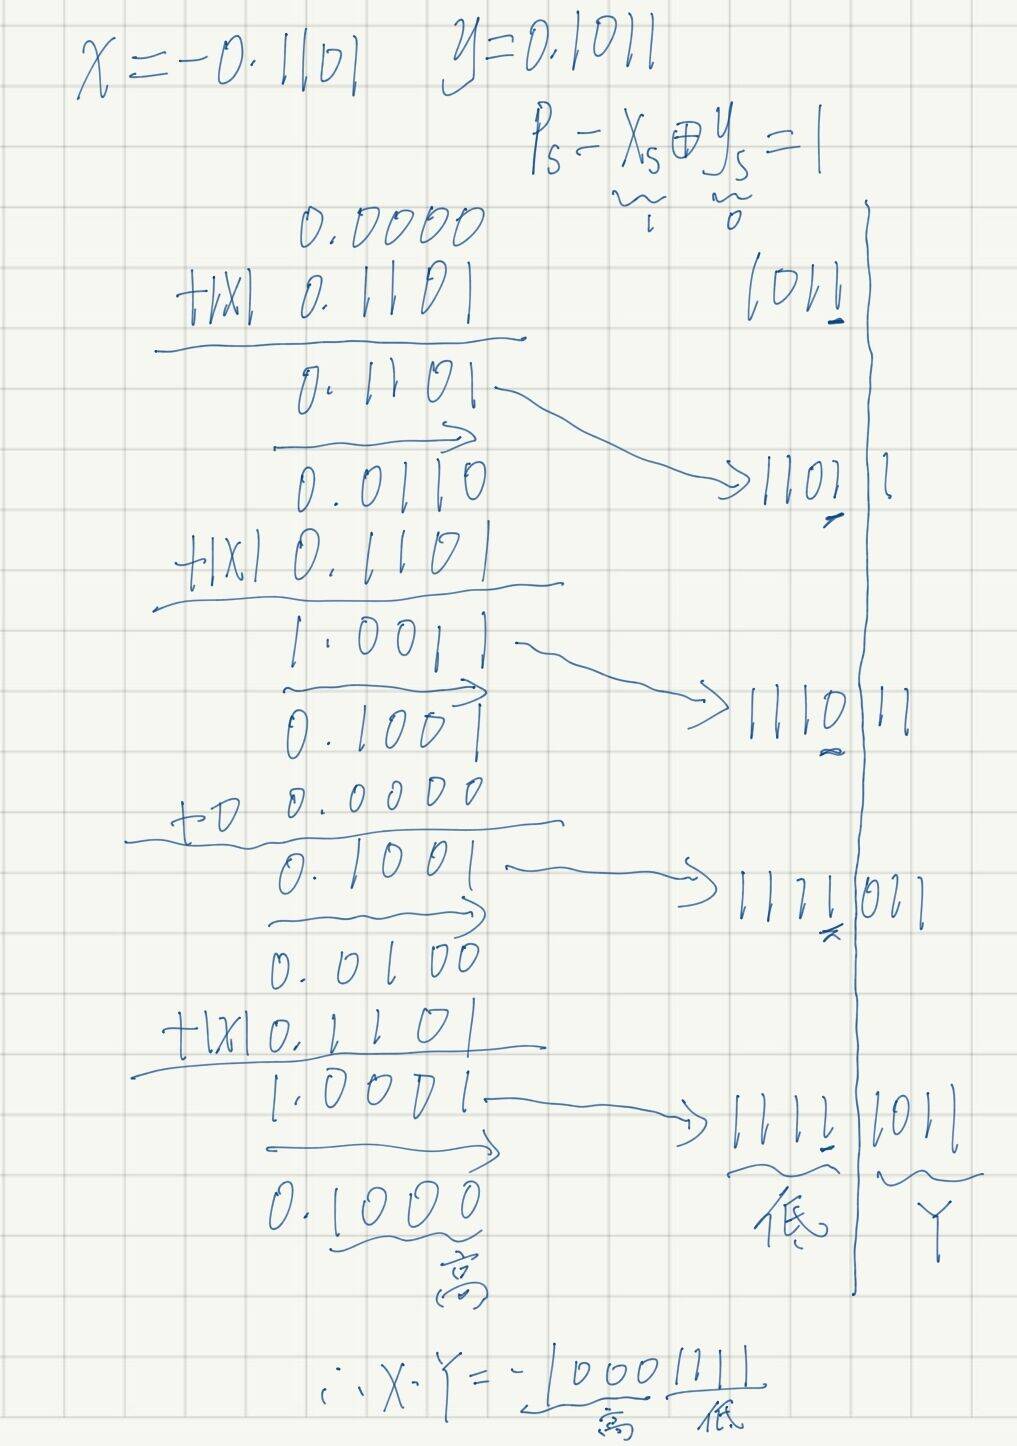 X=-0.1101 y=0.1011
Ps=Xs⊕ys=1
1 0
0.0000
+|X| 0.1101 1011
0.1101
0.0110 1101 1
+|X| 0.1101
1.0011
0.1001 1110 11
+0 0.0000
0.1001 1111 011
0.0100
+|X| 0.1101
1.0001 1111 1011
0.1000 低 Y
高
∴X·Y=-10001111
高 低